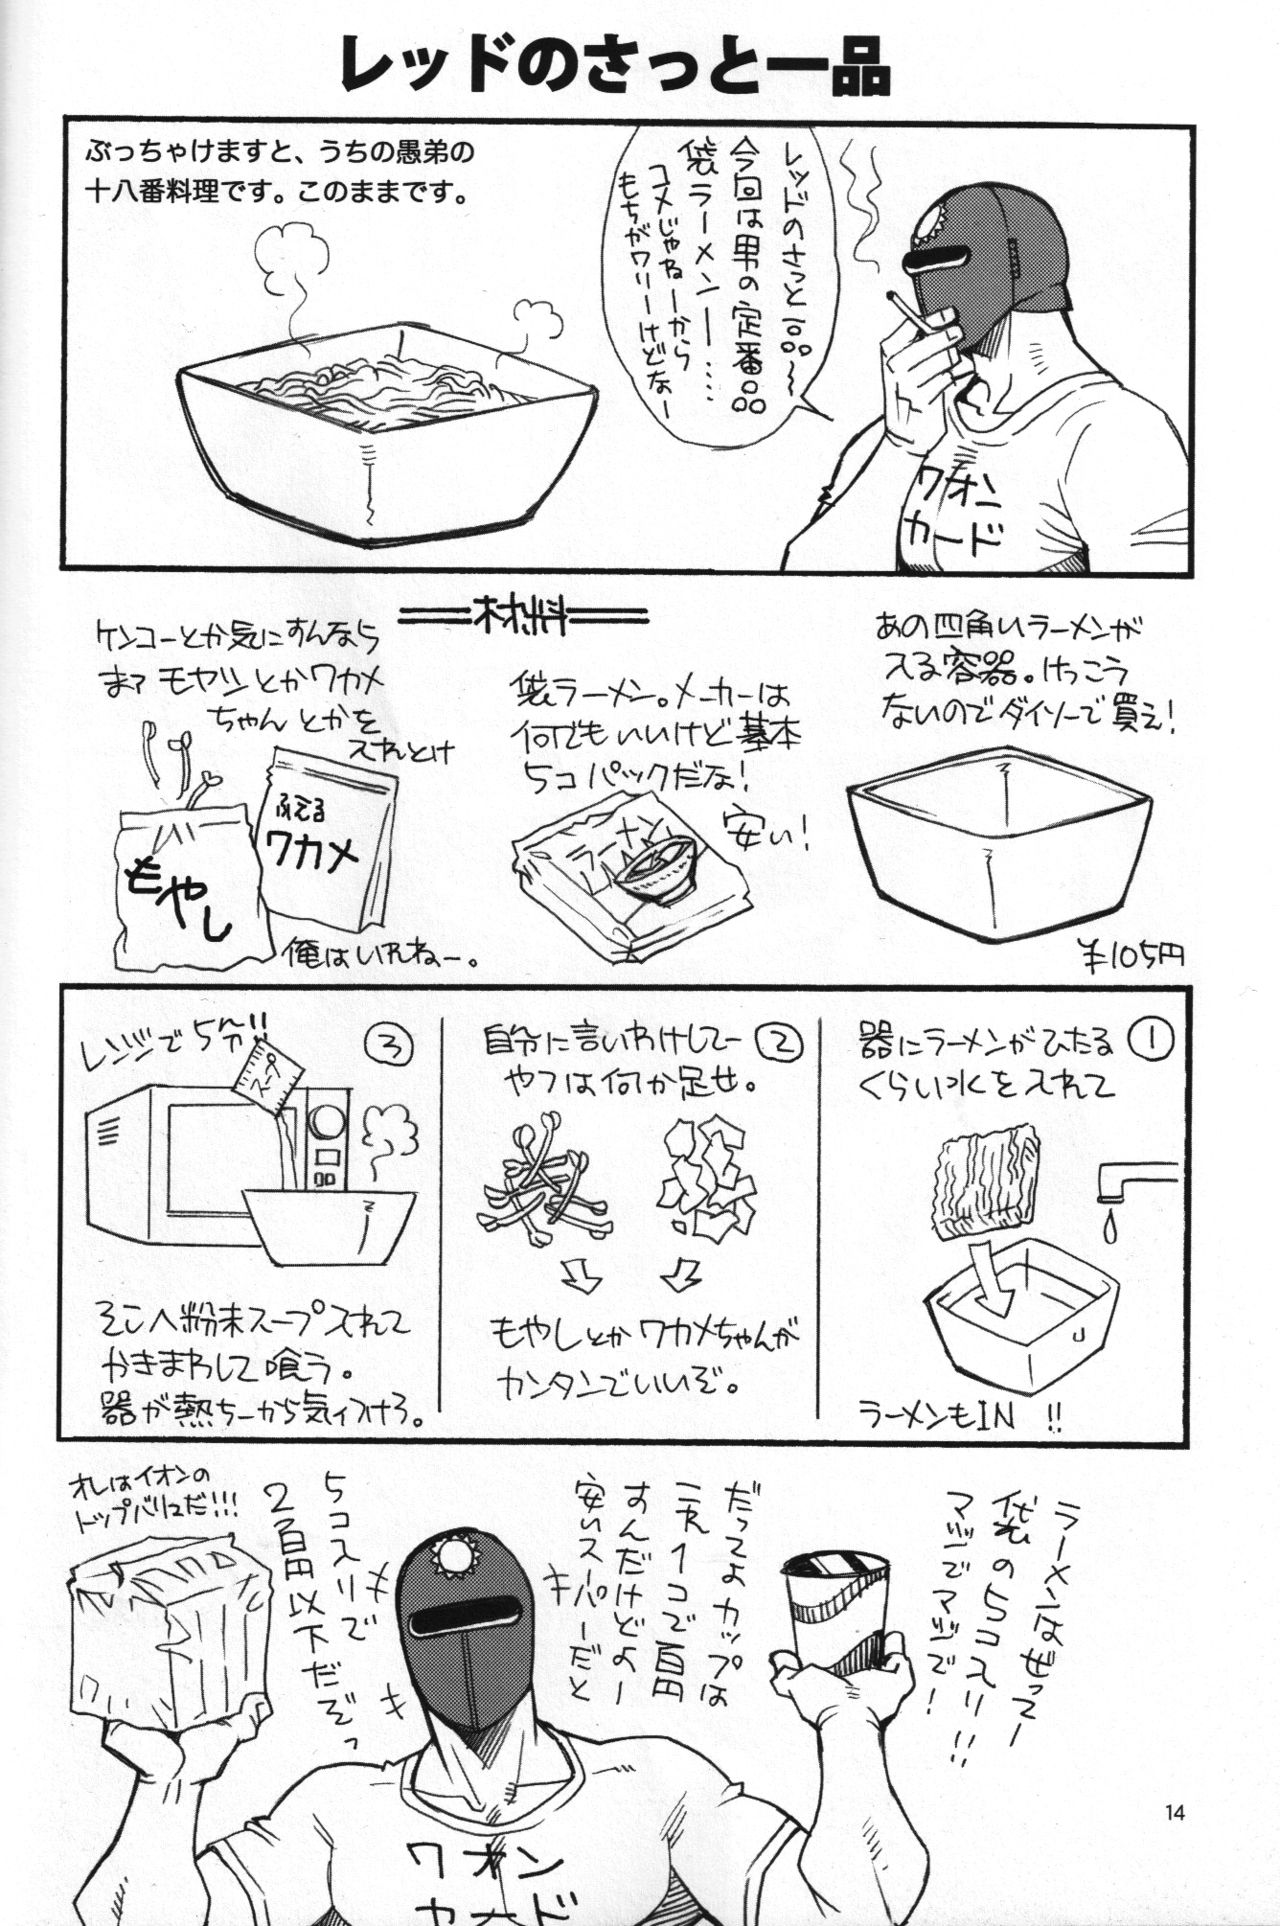 レッドのさっと一品
ぶっちゃけますと、うちの愚弟の
十八番料理です。このままです。
レッドのさっと一品〜
今回は男の定番品
袋ラーメン──……
コメじゃねーから
もちがワリーけどなー
ワオン
カード
材料
あの四角いラーメンが
入る容器。けっこう
ないのでダイソーで買え!
¥105円
袋ラーメン。メーカーは
何でもいいけど基本
5コパックだな!
安い!
ラーメン
ケンコーとか気にすんなら
まァモヤシとかワカメ
ちゃんとかを
入れとけ
ふえる
ワカメ
もやし
俺はいれねー。
①
器にラーメンがひたる
くらい水を入れて
ラーメンもIN!!
②
自分に言いわけしてー
やつは何か足せ。
もやしとかワカメちゃんが
カンタンでいいぞ。
③
レンジで5分!!
スープ
そこへ粉末スープ入れて
かきまわして喰う。
器が熱ちーから気ィつけろ。
ラーメンなぜってー
袋の5コ入り!!
マジでマジで!
だってよカップは
これ1コで百円
すんだけどよー
安いスーパーだと
5コ入りで
2百円以下だぞっ
オレはイオンの
トップバリュだ!!!
ワオン
カード
14